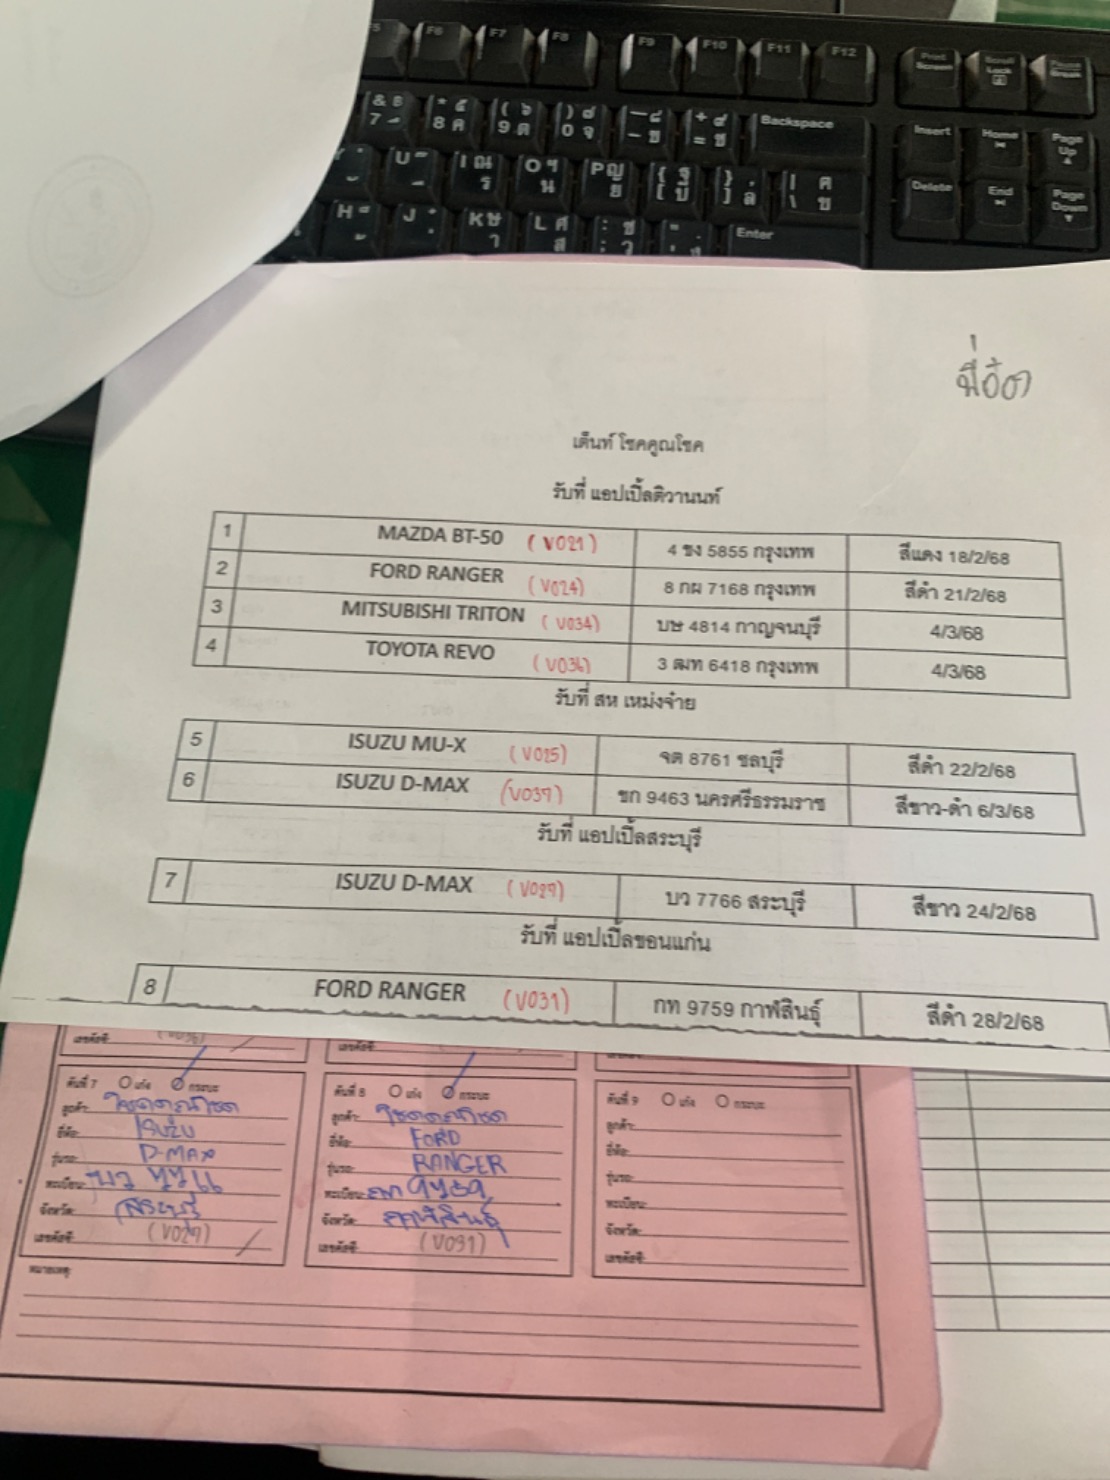 F6 F7 F8 F9 F10 F11 F12 Print Screen Scroll Lock Pause Break
& 7 * 8 ค ( 9 ต ) 0 จ - ข + = ช Backspace Insert Home Page Up
U I ณ ร O ฯ น P ญ ย { [ บ } ] ล | \ ฃ Delete End Page Down
H J K ษ า L ศ ส : ซ ; ว " ' ง Enter
เต็นท์ โชคคูณโชค
รับที่ แอปเปิ้ลติวานนท์
1 MAZDA BT-50 (V021) 4 ขง 5855 กรุงเทพ สีแดง 18/2/68
2 FORD RANGER (V024) 8 กผ 7168 กรุงเทพ สีดำ 21/2/68
3 MITSUBISHI TRITON (V034) บษ 4814 กาญจนบุรี 4/3/68
4 TOYOTA REVO (V036) 3 ฒท 6418 กรุงเทพ 4/3/68
รับที่ สห เหม่งจ๋าย
5 ISUZU MU-X (V025) จต 8761 ชลบุรี สีดำ 22/2/68
6 ISUZU D-MAX (V037) ขก 9463 นครศรีธรรมราช สีขาว-ดำ 6/3/68
รับที่ แอปเปิ้ลสระบุรี
7 ISUZU D-MAX (V027) บว 7766 สระบุรี สีขาว 24/2/68
รับที่ แอปเปิ้ลขอนแก่น
8 FORD RANGER (V031) กท 9759 กาฬสินธุ์ สีดำ 28/2/68
เลขคัสซี: (V036) เลขคัสซี:
คันที่ 7 เก๋ง กระบะ คันที่ 8 เก๋ง กระบะ คันที่ 9 เก๋ง กระบะ
ลูกค้า: โชคคูณโชค ลูกค้า: โชคคูณโชค ลูกค้า:
ยี่ห้อ: ISUZU ยี่ห้อ: FORD ยี่ห้อ:
รุ่นรถ: D-MAX รุ่นรถ: RANGER รุ่นรถ:
ทะเบียน: บว 7766 ทะเบียน: กท 9759 ทะเบียน:
จังหวัด: สระบุรี จังหวัด: กาฬสินธุ์ จังหวัด:
เลขคัสซี: (V027) เลขคัสซี: (V031) เลขคัสซี:
หมายเหตุ: